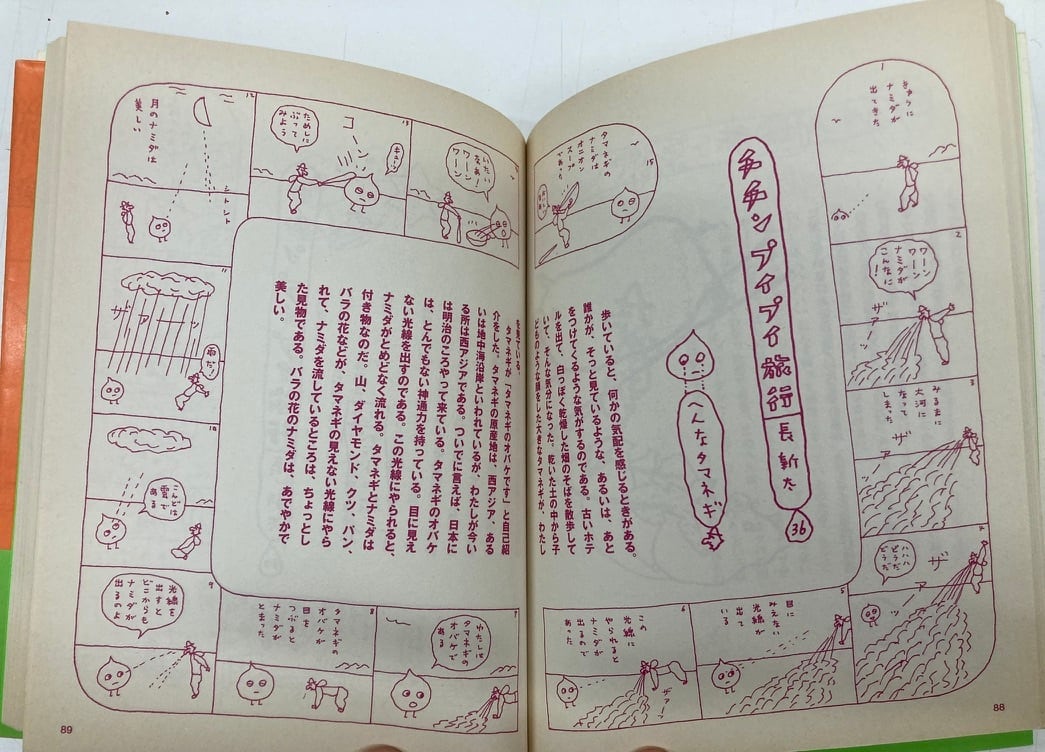 チチンプイプイ旅行
長新太
36
へんなタマネギ
歩いていると、何かの気配を感じるときがある。
誰かが、そっと見ているような、あるいは、あと
をつけてくるような気がするのである。古いホテ
ルを出て、白っぽく乾燥した畑のそばを散歩して
いて、そんな気分になった。乾いた土の中から子
どものような顔をした大きなタマネギが、わたし
を見ている。
タマネギが「タマネギのオバケです」と自己紹
介をした。タマネギの原産地は、西アジア、ある
いは地中海沿岸といわれているが、わたしが今い
る所は西アジアである。ついでに言えば、日本に
は明治のころやって来ている。タマネギのオバケ
は、とんでもない神通力を持っている。目に見え
ない光線を出すのである。この光線にやられると、
ナミダがとめどなく流れる。タマネギとナミダは
付き物なのだ。山、ダイヤモンド、クツ、パン、
バラの花などが、タマネギの見えない光線にやら
れて、ナミダを流しているところは、ちょっとし
た見物である。バラの花のナミダは、あでやかで
美しい。
1
きゅうに
ナミダが
出てきた
2
ワーン
ワーン
ナミダが
こんなに
!
ザアッ
3
みるまに
大河に
なって
しまった
ザアッ
4
ハハハ
どうだ
どうだ
ザアッ
5
目に
みえない
光線が
出て
いる
6
この
光線に
やられると
ナミダが
出るので
あった
ザァー
7
わたしは
タマネギの
オバケで
ある
8
タマネギの
オバケが
目を
つぶると
ナミダが
とまった
9
光線を
出すと
どこからも
ナミダが
出るのよ
10
こんどは
雲で
ある
11
ザアーッ
雨だッ
12
月のナミダは
美しい
シトシト
13
ためしに
ぶって
みよう
コーン
キュー
いたい
なあー
ワーン
15
タマネギの
ナミダは
オニオン
スープ
であった
88
89